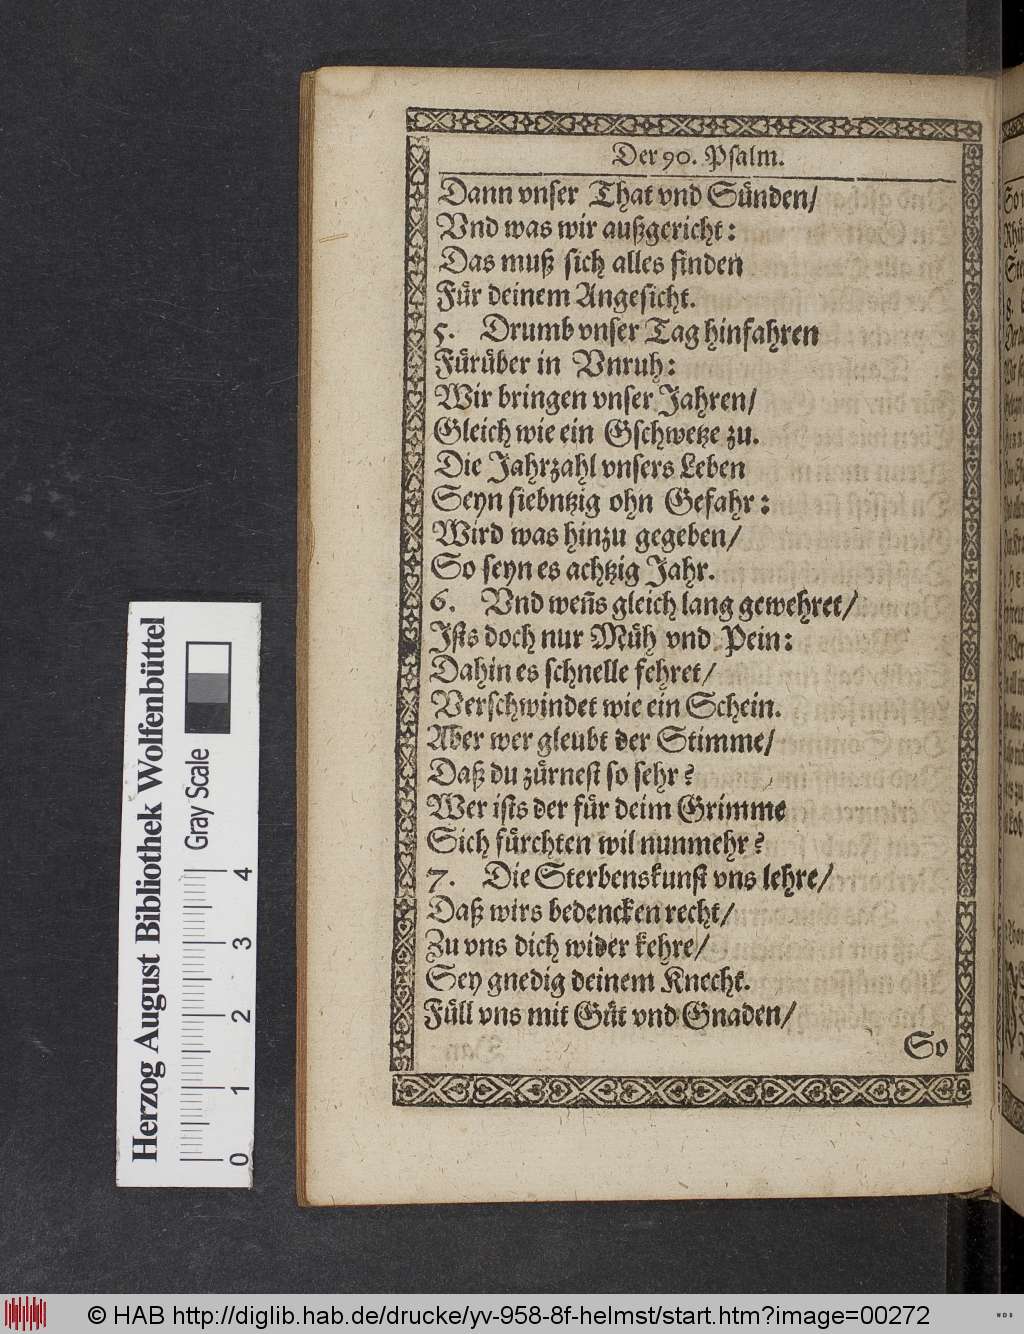 Der 90. Psalm.
Dann vnser That vnd Sünden/
Vnd was wir außgericht:
Das muß sich alles finden
Für deinem Angesicht.
5. Drumb vnser Tag hinfahren
Fürüber in Vnruh:
Wir bringen vnser Jahren/
Gleich wie ein Gschwetze zu.
Die Jahrzahl vnsers Leben
Seyn siebntzig ohn Gefahr:
Wird was hinzu gegeben/
So seyn es achtzig Jahr.
6. Vnd weñs gleich lang gewehret/
Ists doch nur Müh vnd Pein:
Dahin es schnelle fehret/
Verschwindet wie ein Schein.
Aber wer gleubt der Stimme/
Daß du zürnest so sehr?
Wer ists der für deim Grimme
Sich fürchten wil nunmehr?
7. Die Sterbenskunst vns lehre/
Daß wirs bedencken recht/
Zu vns dich wider kehre/
Sey gnedig deinem Knecht.
Füll vns mit Güt vnd Gnaden/
So
Herzog August Bibliothek Wolfenbüttel
Gray Scale
0 1 2 3 4
© HAB http://diglib.hab.de/drucke/yv-958-8f-helmst/start.htm?image=00272